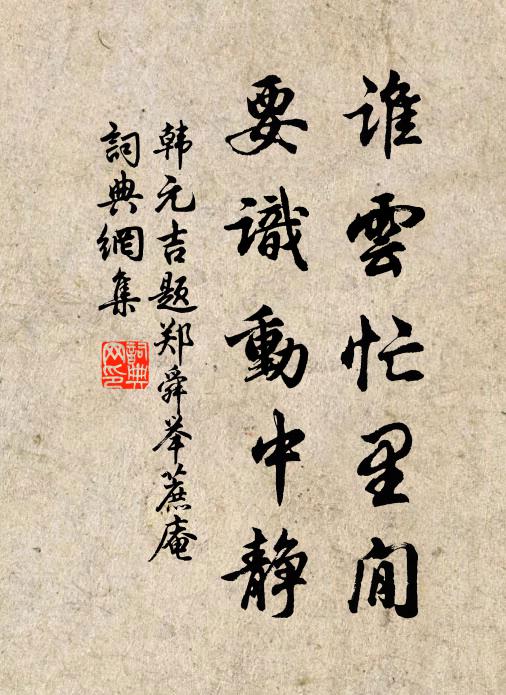 谁雲忙里閒
要識動中静
韩元吉题郑舜举蔗庵
詞典網集
詞典
网印